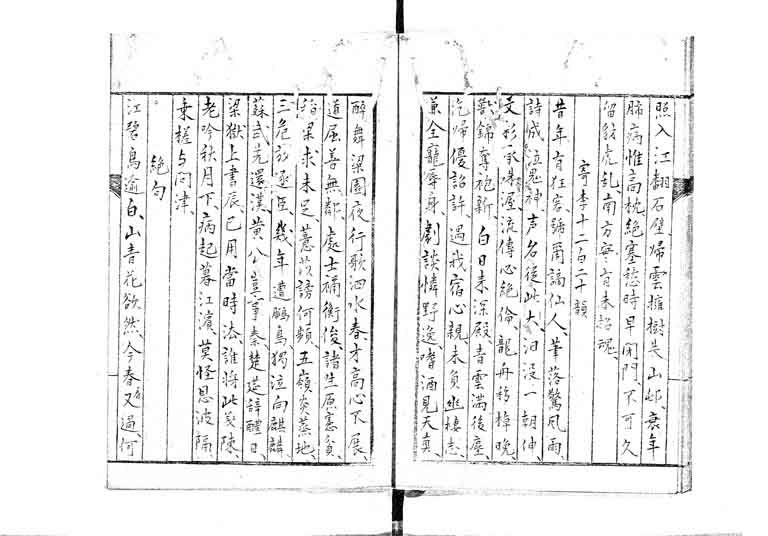 照入江翻石壁歸雲擁樹失山邨、衰年
肺病惟高枕絕塞愁時早閉門、不可久
留豺虎亂、南方實有未招魂、
寄李十二白二十韻
昔年有狂客、號爾謫仙人、筆落驚風雨、
詩成泣鬼神、声名從此大、汩没一朝伸、
文彩承殊渥、流傳必絕倫、龍舟移棹晚、
獸錦奪袍新、白日來深殿、青雲滿後塵、
乞歸優詔許、遇我宿心親、未負幽棲志、
兼全寵辱身、劇談憐野逸、嗜酒見天真、
醉舞梁園夜、行歌泗水春、才高心不展、
道屈善無鄰、處士禰衡俊、諸生原憲貧、
稻粱求未足、薏苡謗何頻、五嶺炎蒸地、
三危放逐臣、幾年遭鵩鳥、獨泣向麒麟、
蘇武先還漢、黄公豈事秦、楚筵辞醴日、
梁獄上書辰、已用當時法、誰將此義陳、
老吟秋月下、病起暮江濱、莫怪恩波隔、
乘槎与问津、
絕句
江碧鳥逾白、山青花欲然、今春看又過、何